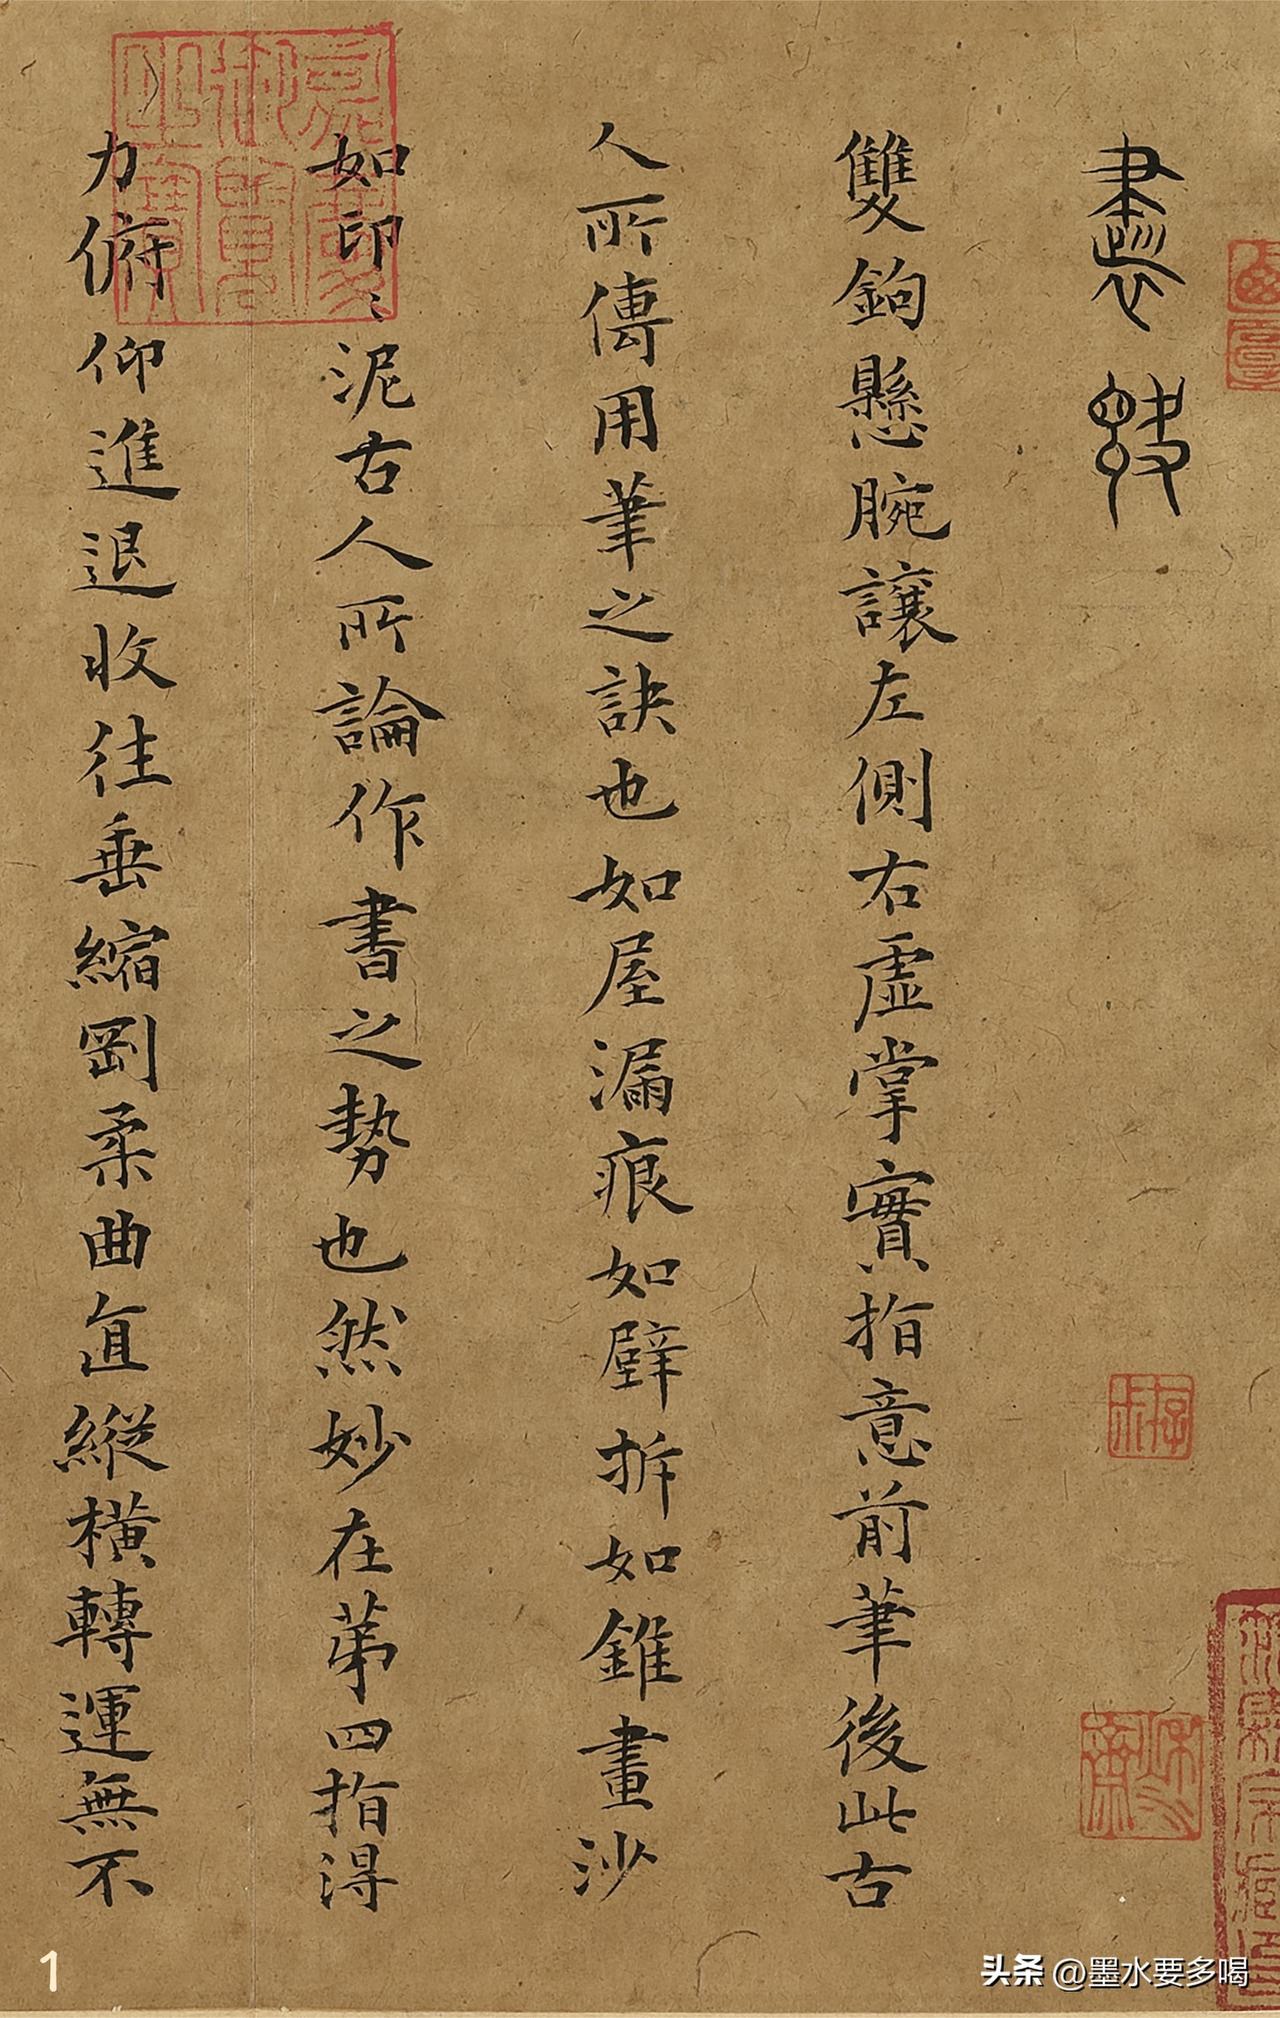 書訣
雙鉤懸腕讓左側右虛掌實指意前筆後此古
人所傳用筆之訣也如屋漏痕如壁拆如錐畫沙
如印〻泥古人所論作書之勢也然妙在第四指得
力俯仰進退收往垂縮剛柔曲直縱橫轉運無不
嘉慶御覽之寶
1
头条 @墨水要多喝